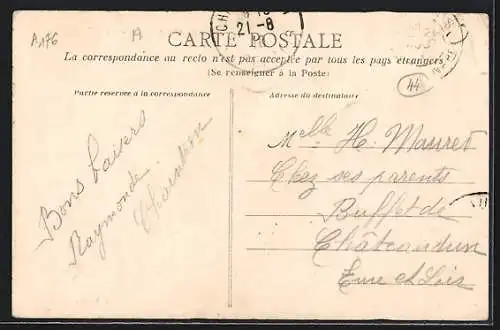 A176
A
CH
21-8
CARTE POSTALE
La correspondance au recto n'est pas acceptée par tous les pays étrangers
(Se renseigner à la Poste)
44
Partie réservée à la correspondance
Adresse du destinataire
Bons baisers
Raymonde
Melle H. Mauret
Chez ses parents
Buffet de
Châteaudun
Eure et Loir